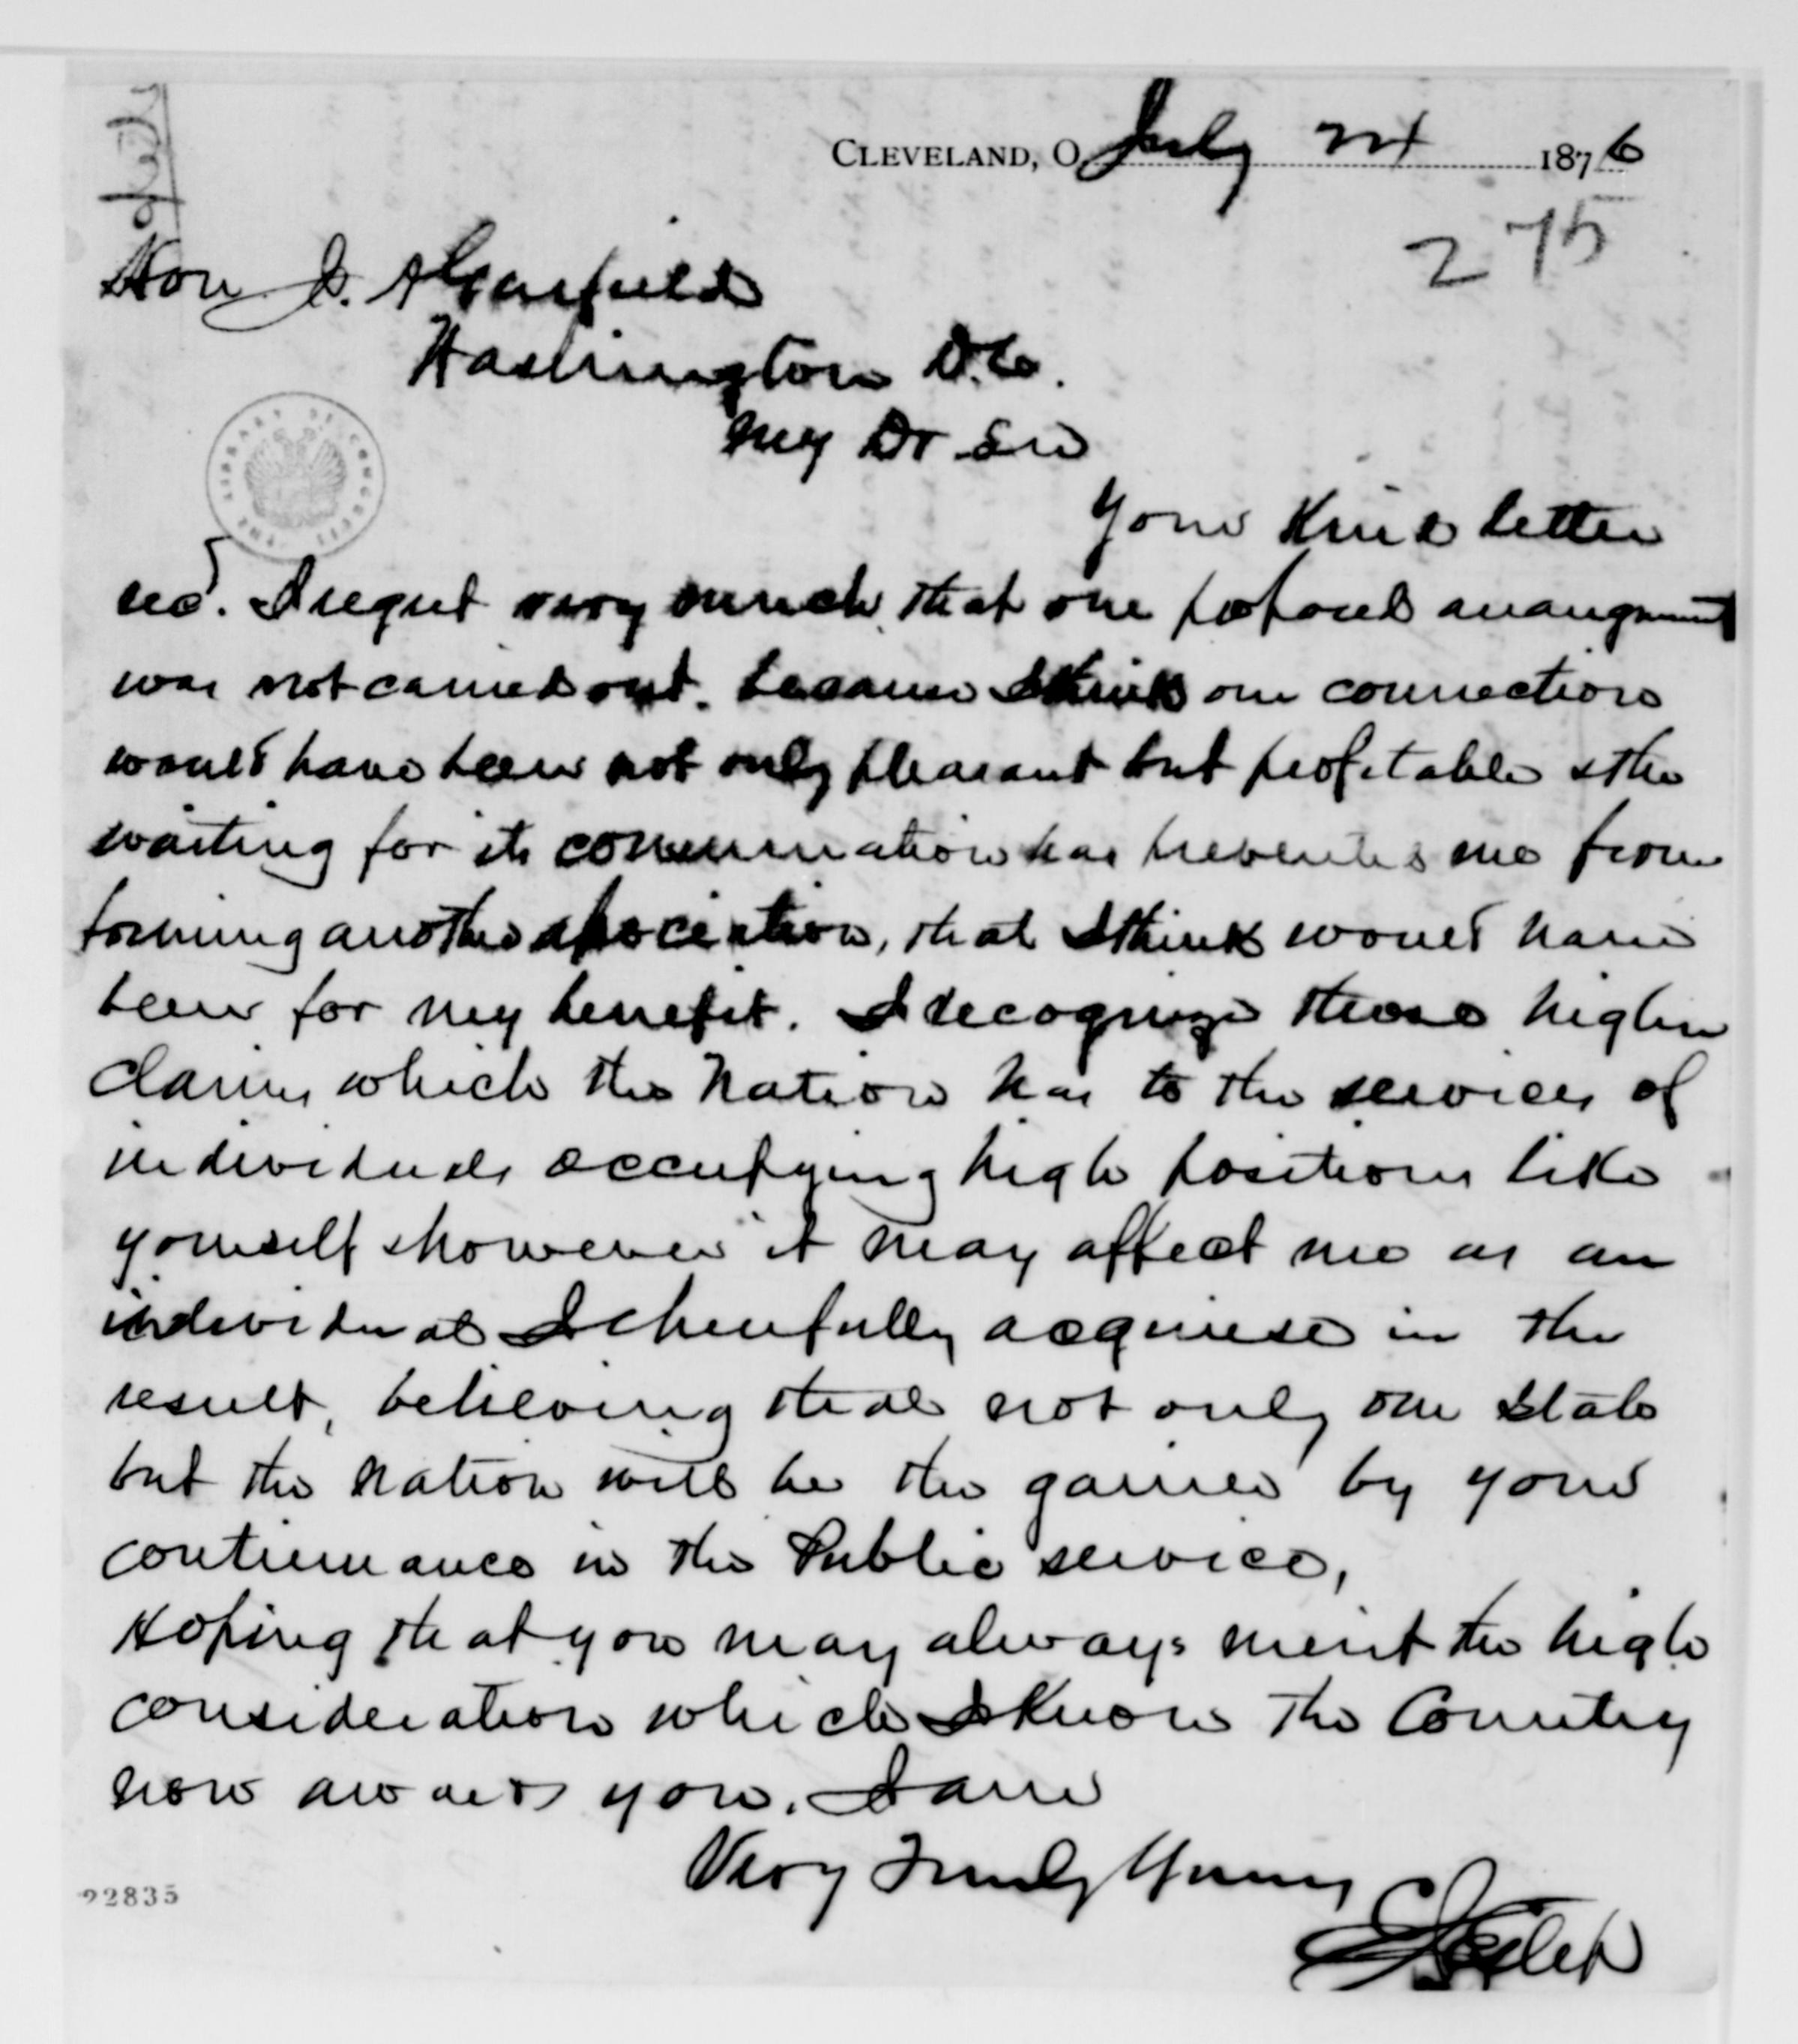 CLEVELAND, O. July 1876
275
Hon J. A Garfield
Washington D.C.
My Dr Sir
Your Kind letter
recd. I regret very much that our proposed arrangment
was not carried out. because I think our connection
would have been not only pleasant but profitable & the
waiting for its consummation has prevented me from
forming another association, that I think would have
been for my benefit. I recognize those higher
claims which the Nation has to the services of
individuals occupying high positions like
yourself & however it may affect me as an
individual I cheerfully acquiese in the
result, believing that not only our State
but the nation will be the gainer by your
continuance in the Public service,
Hoping that you may always merit the high
consideration which I Know the Country
now awards you. I am
Very Truly Yours
22835
LIBRARY OF CONGRESS